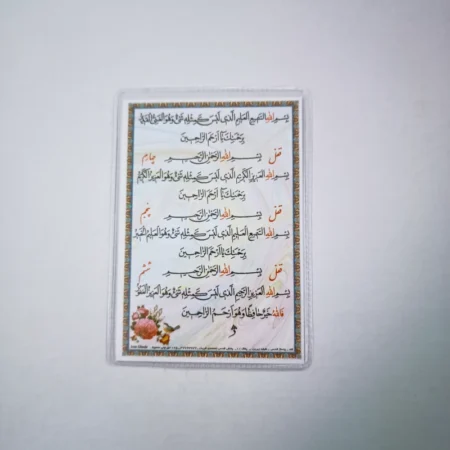 بِسْمِ اللهِ السَّمِيعِ الْعَلِيمِ الَّذِي لَيْسَ كَمِثْلِهِ شَيْءٌ وَهُوَ
بِرَحْمَتِكَ يَا أَرْحَمَ الرَّاحِمِينَ
قفل بِسْمِ اللهِ الرَّحْمٰنِ الرَّحِيمِ چهارم
بِسْمِ اللهِ الْعَزِيزِ الْكَرِيمِ الَّذِي لَيْسَ كَمِثْلِهِ شَيْءٌ وَهُوَ الْعَزِيزُ الْكَرِيمُ
بِرَحْمَتِكَ يَا أَرْحَمَ الرَّاحِمِينَ
قفل بِسْمِ اللهِ الرَّحْمٰنِ الرَّحِيمِ پنجم
بِسْمِ اللهِ السَّمِيعِ الْعَلِيمِ الَّذِي لَيْسَ كَمِثْلِهِ شَيْءٌ وَهُوَ الْعَلِيمُ
بِرَحْمَتِكَ يَا أَرْحَمَ الرَّاحِمِينَ
قفل بِسْمِ اللهِ الرَّحْمٰنِ الرَّحِيمِ ششم
بِسْمِ اللهِ الْعَزِيزِ الرَّحِيمِ الَّذِي لَيْسَ كَمِثْلِهِ شَيْءٌ وَهُوَ الْعَزِيزُ الْغَفُورُ
فَاللهُ خَيْرٌ حَافِظًا وَهُوَ أَرْحَمُ الرَّاحِمِينَ